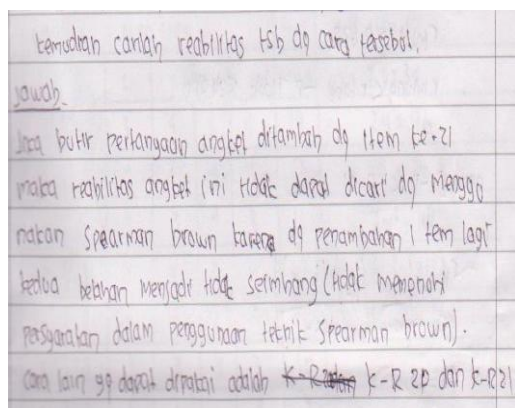 kemudian carilah reabilitas tsb dg cara tersebut.
Jawab.
Jika butir pertanyaan angket ditambah dg item ke-21
maka reabilitas angket ini tidak dapat dicari dg menggu
nakan Spearman brown karena dg penambahan 1 item lagi
kedua belahan menjadi tidak seimbang (tidak memenuhi
persyaratan dalam penggunaan teknik Spearman brown).
Cara lain yg dapat dipakai adalah K-R 20 dan K-R 21